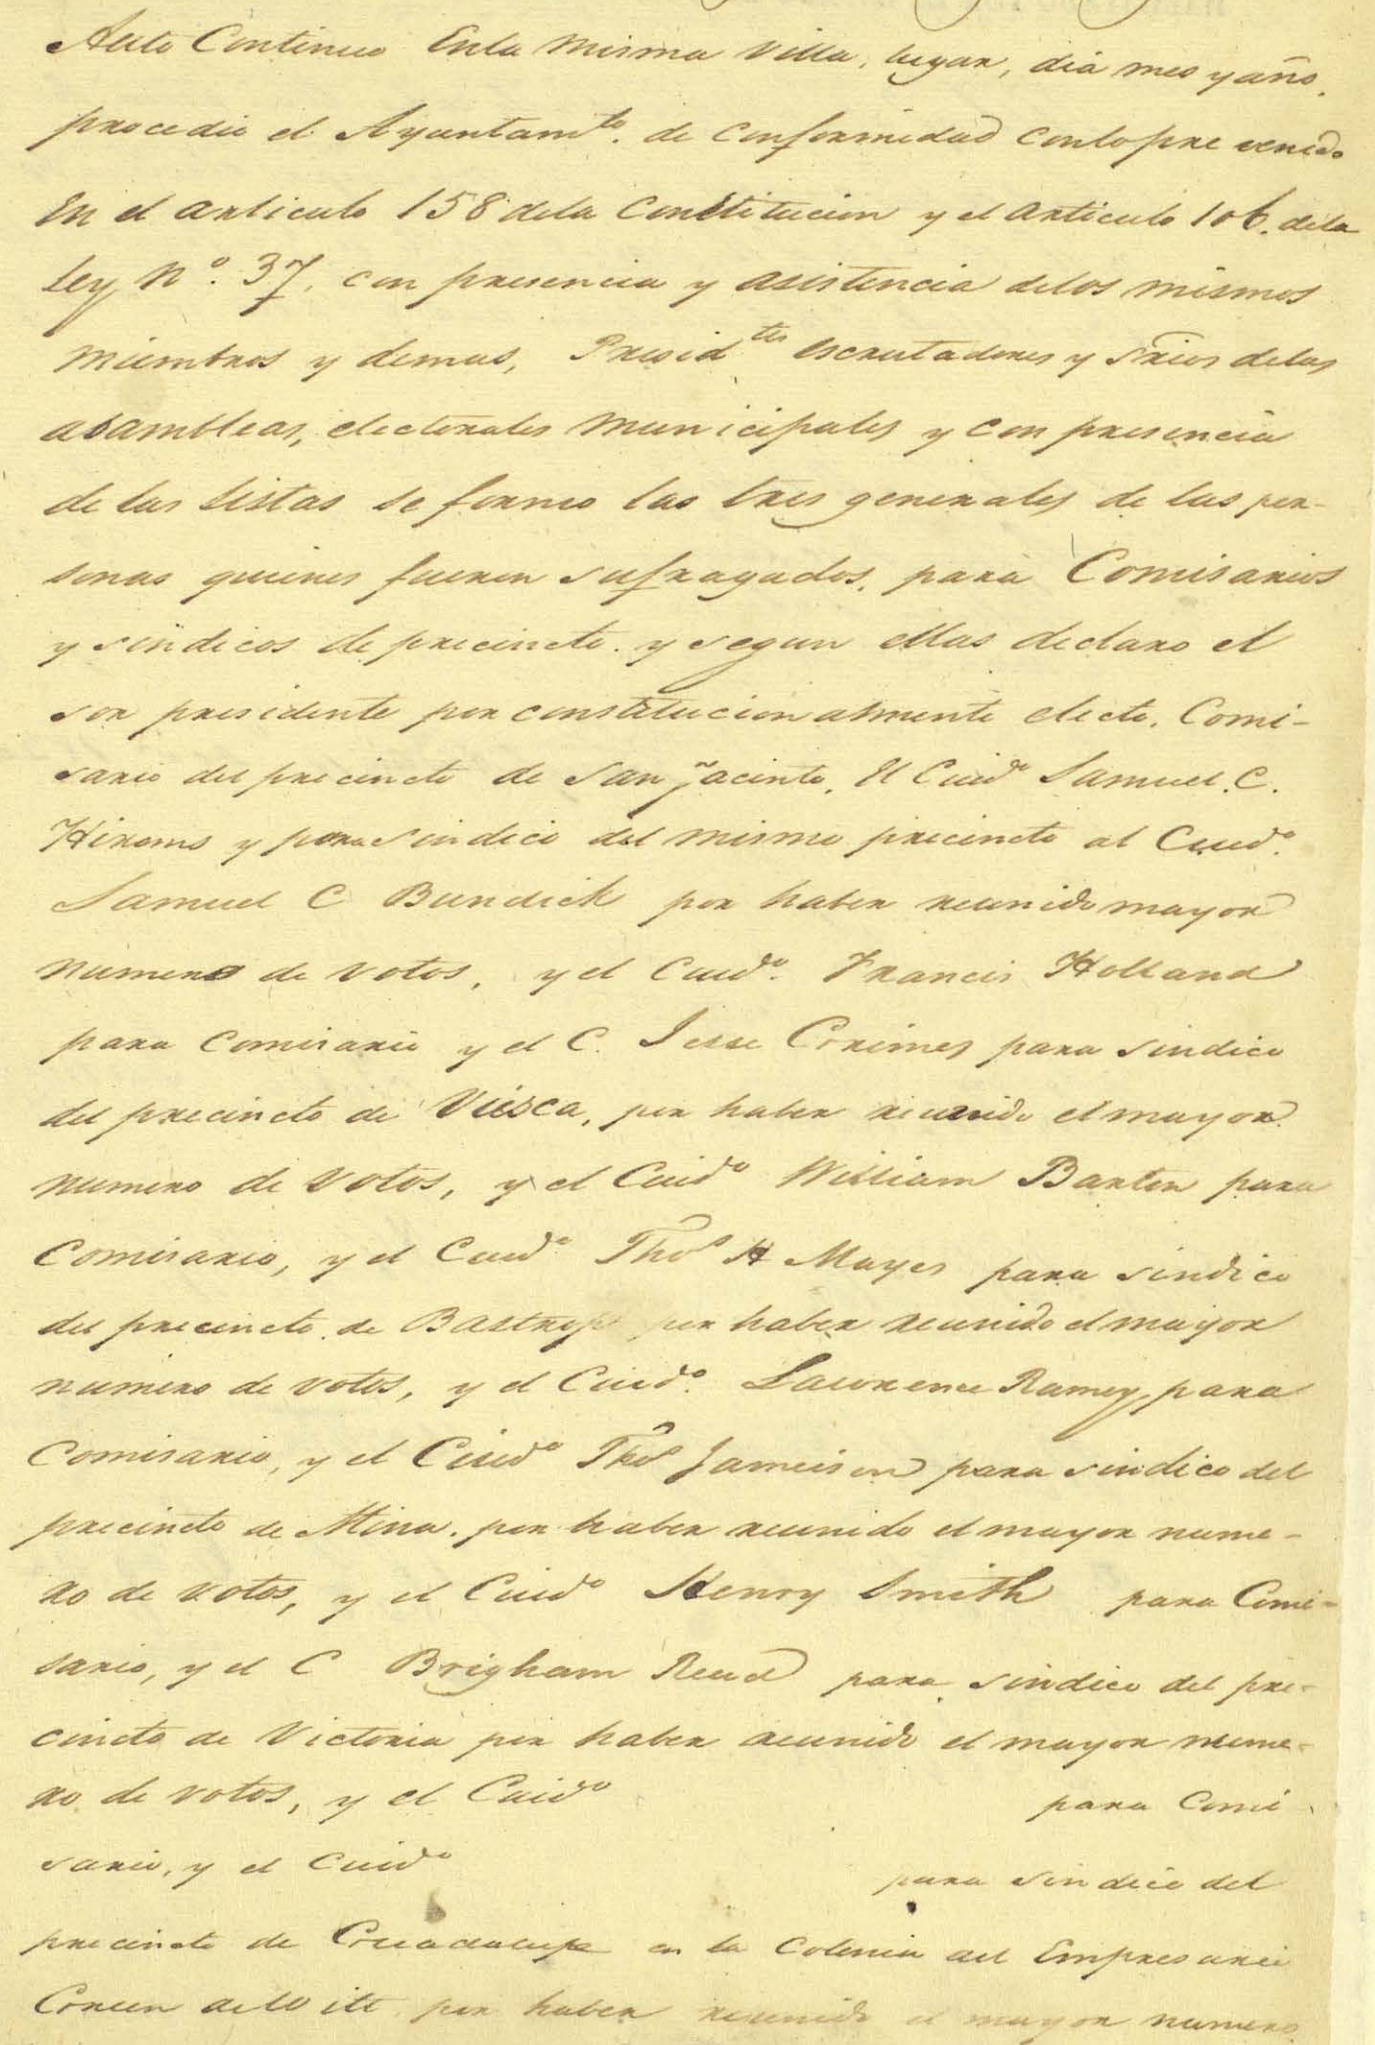 Auto Continuo En la misma Villa, lugar, dia mes y año,
procedio el Ayuntamto. de conformidad con lo prevenido
En el articulo 158 de la Constitucion y el articulo 106. de la
Ley No. 37, con presencia y asistencia de los mismos
miembros y demas, Presidtes escrutadores y Srios de las
asambleas, electorales Municipales y con presencia
de las listas se formo las tres generales de las per-
sonas quienes fueron sufragados, para Comisarios
y sindicos de precincto. y segun ellas declaro el
sor presidente por constitucionalmente electo. Comi-
sario del precincto de San Jacinto, El Ciudo Samuel. C.
Hiroms y para sindico del mismo precincto al Ciudo.
Samuel C Bundick por haber reunido mayor
numero de votos, y el Ciudo. Francis Holland
para comisario y el C. Jesse Grimes para sindico
del precincto de Viesca, por haber reunido el mayor
numero de votos, y el Ciudo William Barton para
Comisario, y el Ciudo. Thos H Mayes para sindico
del precincto de Bastrop por haber reunido el mayor
numero de votos, y el Ciudo. Lawrence Ramey para
Comisario, y el Ciudo Thos Jameison para sindico del
precincto de Mina. por haber reunido el mayor nume-
ro de votos, y el Ciudo Henry Smith para Comi-
sario, y el C Brigham Reed para sindico del pre-
cincto de Victoria por haber reunido el mayor nume-
ro de votos, y el Ciudo para Comi-
sario, y el Ciudo para sindico del
precincto de Guadalupe en la Colonia del Empresario
Green deWitt por haber reunido el mayor numero